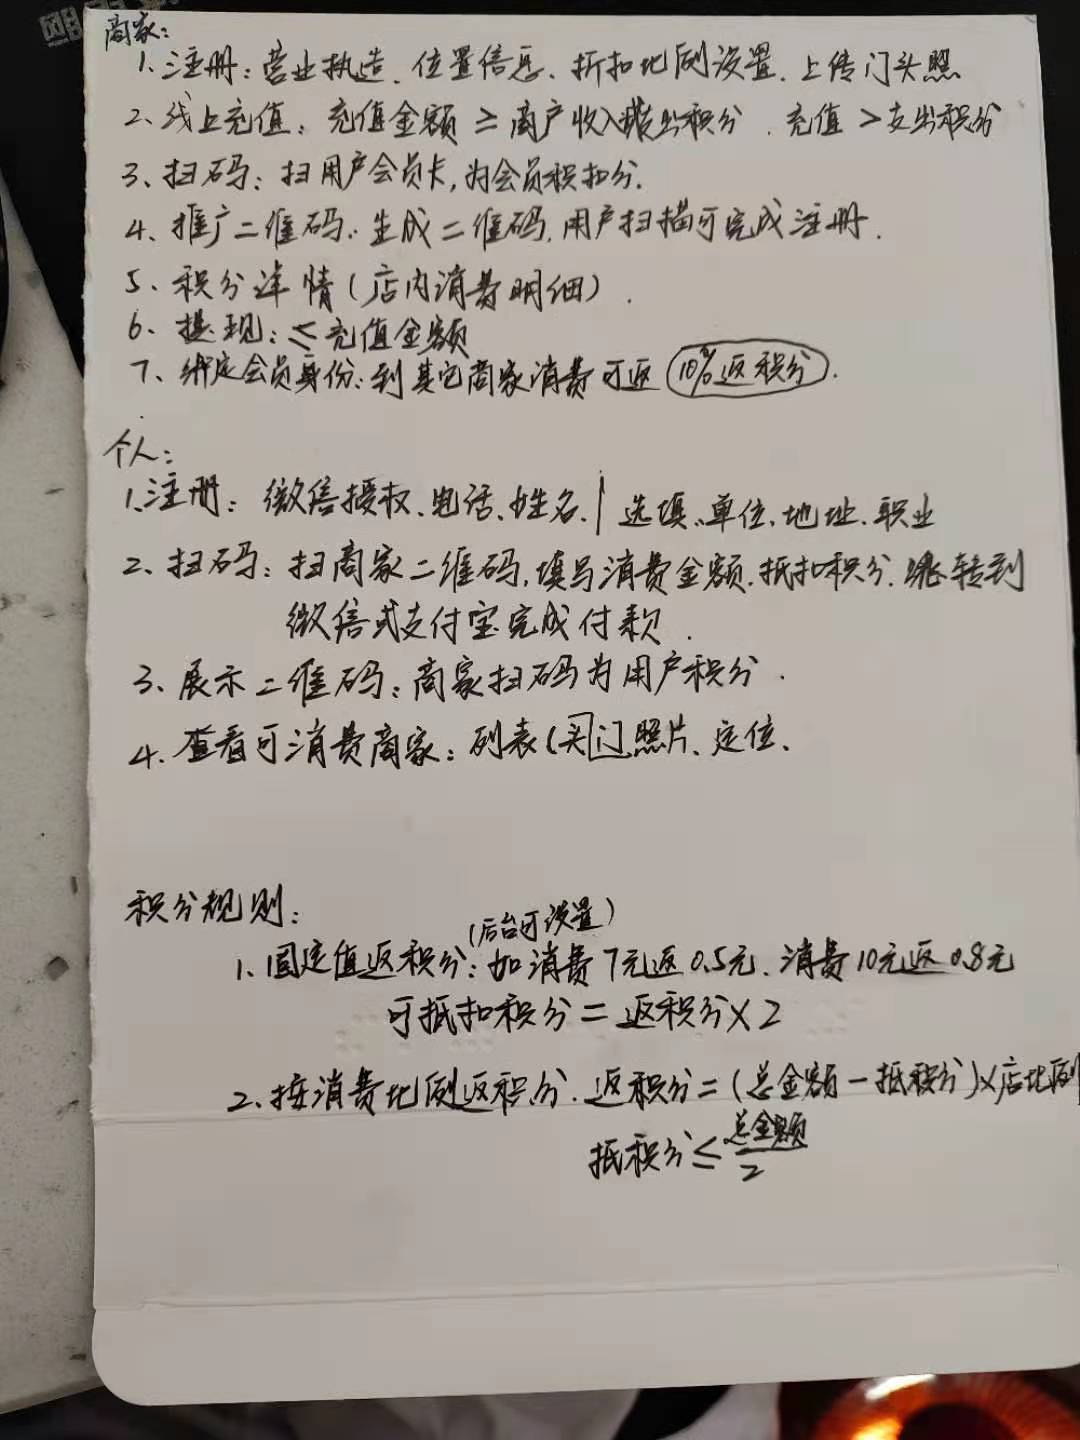 商家：
1、注册：营业执造、位置信息、折扣比例设置、上传门头照
2、线上充值：充值金额≥商户收入支出积分、充值＞支出积分
3、扫码：扫用户会员卡，为会员积扣分.
4、推广二维码：生成二维码，用户扫描可完成注册.
5、积分详情（店内消费明细）.
6、提现：≤充值金额
7、绑定会员身份：到其它商家消费可返10%返积分.
个人：
1、注册：微信授权、电话、姓名、| 选填、单位、地址、职业
2、扫码：扫商家二维码，填写消费金额、抵扣积分、跳转到
微信或支付宝完成付款.
3、展示二维码：商家扫码为用户积分.
4、查看可消费商家：列表(门照片、定位、
积分规则：
（后台可设置）
1、固定值返积分：如消费7元返0.5元、消费10元返0.8元
可抵扣积分＝返积分×2
2、按消费比例返积分、返积分＝(总金额－抵积分)×店比例
抵积分≤总金额/2